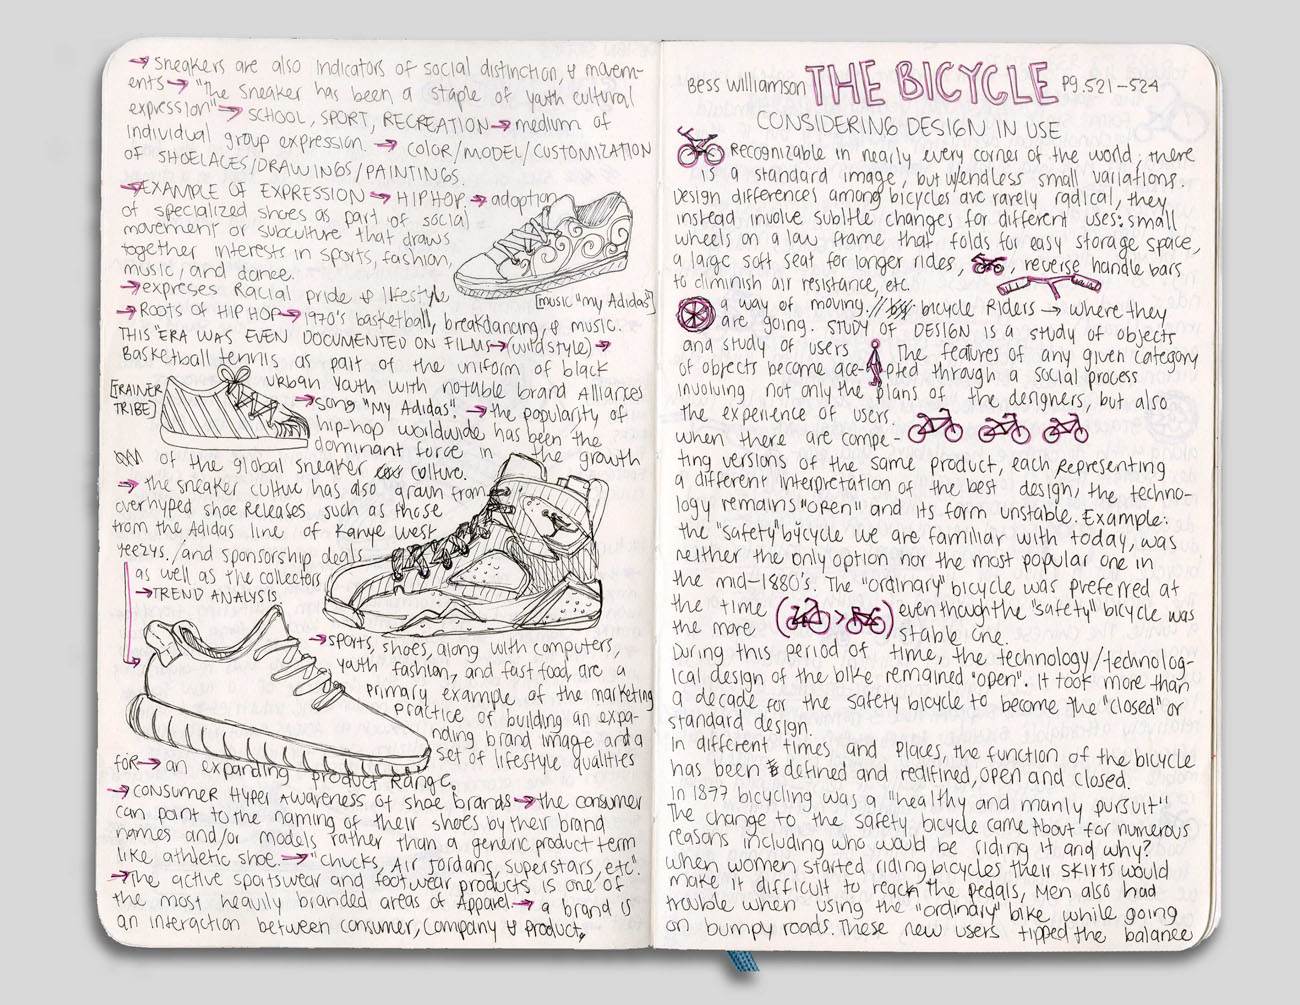 → Sneakers are also indicators of social distinction, & movem-
ents → "The sneaker has been a staple of youth cultural
expression" → SCHOOL, SPORT, RECREATION → medium of
individual group expression. → COLOR/MODEL/CUSTOMIZATION
OF SHOELACES/DRAWINGS/PAINTINGS.
→ EXAMPLE OF EXPRESSION → HIPHOP. → adoption
of specialized shoes as part of social
movement or subculture that draws
together interests in sports, fashion,
music, and dance.
→ expreses Racial pride & lifestyle
[music "my Adidas"]
→ Roots of HIPHOP → 1970's basketball, breakdancing, & music.
THIS ERA WAS EVEN DOCUMENTED ON FILMS → (wildstyle) →
Basketball tennis as part of the uniform of black
urban youth with notable brand Alliances
[TRAINER
TRIBE]
→ song "My Adidas". → the popularity of
hip-hop worldwide has been the
dominant force in the growth
of the global sneaker culture.
→ the sneaker cultue has also grown from
overhyped shoe Releases such as those
from the Adidas line of Kanye West
Yeezys./and sponsorship deals
as well as the collectors
→ TREND ANALYSIS
→ sports, shoes, along with computers,
youth fashion, and fast food, are a
primary example of the marketing
practice of building an expa-
nding brand image and a
set of lifestyle qualities
for → an expanding product Range.
→ CONSUMER HYPER AWARENESS OF shoe brands → the consumer
can point to the naming of their shoes by their brand
names and/or models rather than a generic product term
like athletic shoe. → "Chucks, Air Jordans, superstars, etc."
→ The active sportswear and footwear products is one of
the most heavily branded areas of Apparel → a brand is
an interaction between consumer, company & product.
Bess Williamson THE BICYCLE PG. 521-524
CONSIDERING DESIGN IN USE
Recognizable in nearly every corner of the world, there
is a standard image, but w/endless small variations.
Design differences among bicycles are rarely radical, they
instead involve subltle changes for different uses: small
wheels on a low frame that folds for easy storage space,
a large soft seat for longer rides, , reverse handle bars
to diminish air resistance, etc.
a way of moving // bicycle Riders → where they
are going. STUDY OF DESIGN is a study of objects
and study of users The features of any given category
of objects become ace- pted through a social process
involving not only the plans of the designers, but also
the experience of users.
when there are compe-
ting versions of the same product, each representing
a different interpretation of the best design, the techno-
logy remains "open" and its form unstable. Example:
the "safety" bicycle we are familiar with today, was
neither the only option nor the most popular one in
the mid-1880's. The "ordinary" bicycle was preferred at
the time ( > ) even though the "safety" bicycle was
the more stable one.
During this period of time, the technology/technolog-
ical design of the bike remained "open". It took more than
a decade for the safety bicycle to become the "closed" or
standard design.
In different times and places, the function of the bicycle
has been defined and redifined, open and closed.
In 1877 bicycling was a "healthy and manly pursuit"
The change to the safety bicycle came about for numerous
reasons including who would be riding it and why?
When women started riding bicycles their skirts would
make it difficult to reach the pedals, Men also had
trouble when using the "ordinary" bike while going
on bumpy roads. These new users tipped the balance